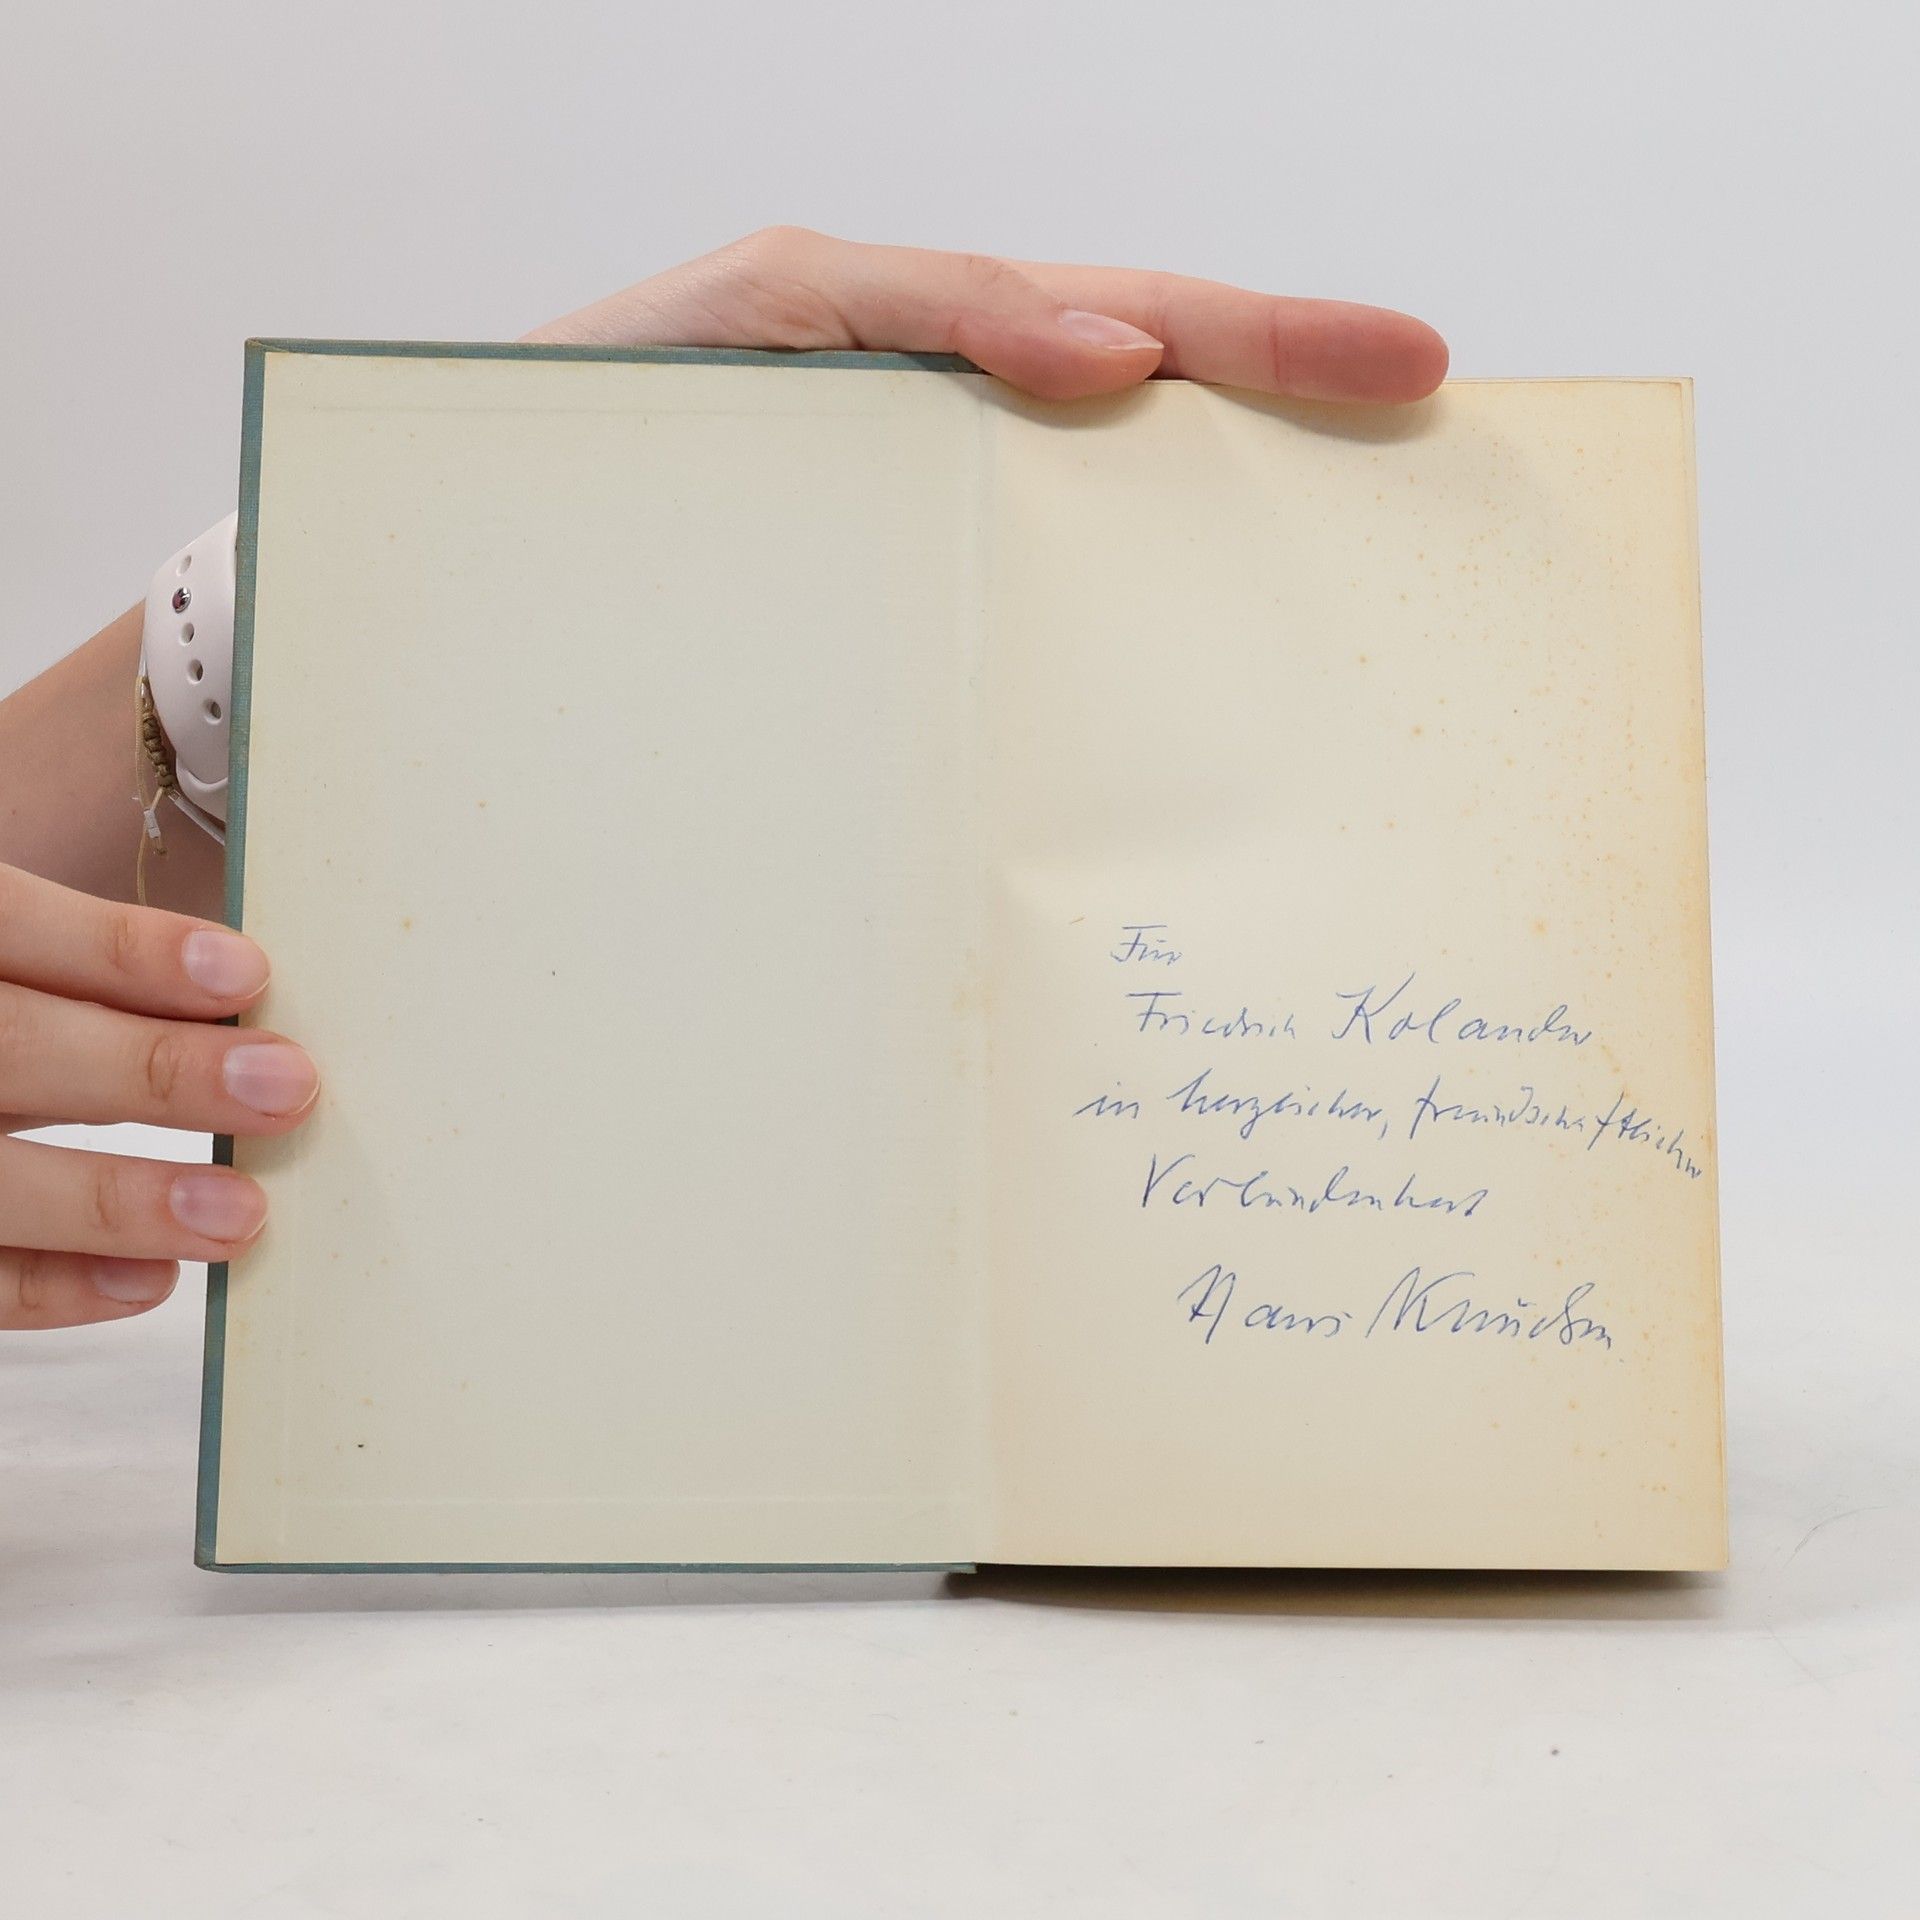 Für
Friedrich Kolander
in herzlicher, freundschaftlicher
Verbundenheit
Hans Knudsen